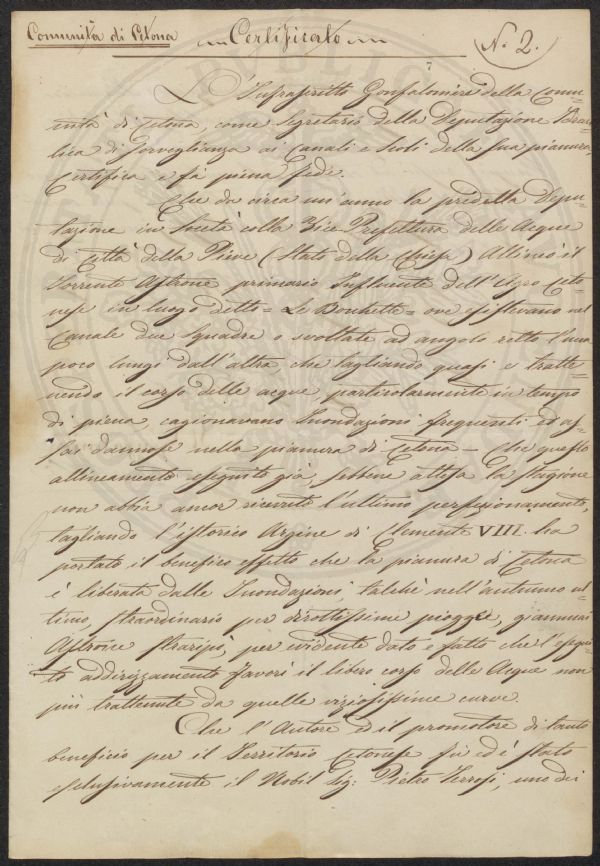 Comunità di Cetona
Certificato
N. 2.
L'Infrascritto Gonfaloniere della Comu-
nità di Cetona, come Segretario della Deputazione Idrau-
lica di Sorveglianza ai Canali e Scoli della sua pianura,
Certifica e fà piena fede.
Che da circa un'anno la predetta Depu-
tazione in Società colla Vice-Prefettura delle Acque
di Città della Pieve (Stato della Chiesa) Allineò il
Torrente Astrone primario Influente dell'Agro Ceto-
nese in luogo detto = Le Bonchette = ove esistevano nel
Canale due squadre o svoltate ad angolo retto l'una
poco lungi dall'altra, che tagliando quasi e tratte-
nendo il corso delle acque, particolarmente in tempo
di piena, cagionavano Inondazioni frequenti ed as-
sai dannose nella pianura di Cetona — Che questo
allineamento eseguito già, sebbene attesa la stagione
non abbia ancor ricevuto l'ultimo perfezionamento,
tagliando l'istorico Argine di Clemente VIII. ha
portato il benefico effetto che la pianura di Cetona
è liberata dalle Inondazioni, talchè nell'autunno ul-
timo, straordinario per dirottissime piogge, giammai
Astrone straripò, per evidente dato e fatto che l'esegui-
to addirizzamento favorì il libero corso delle Acque non
più trattenute da quelle viziosissime curve.
Che l'Autore ed il promotore di tanto
beneficio per il Territorio Cetonese fù ed è stato
esclusivamente il Nobil Sig: Pietro Terrosi, uno dei